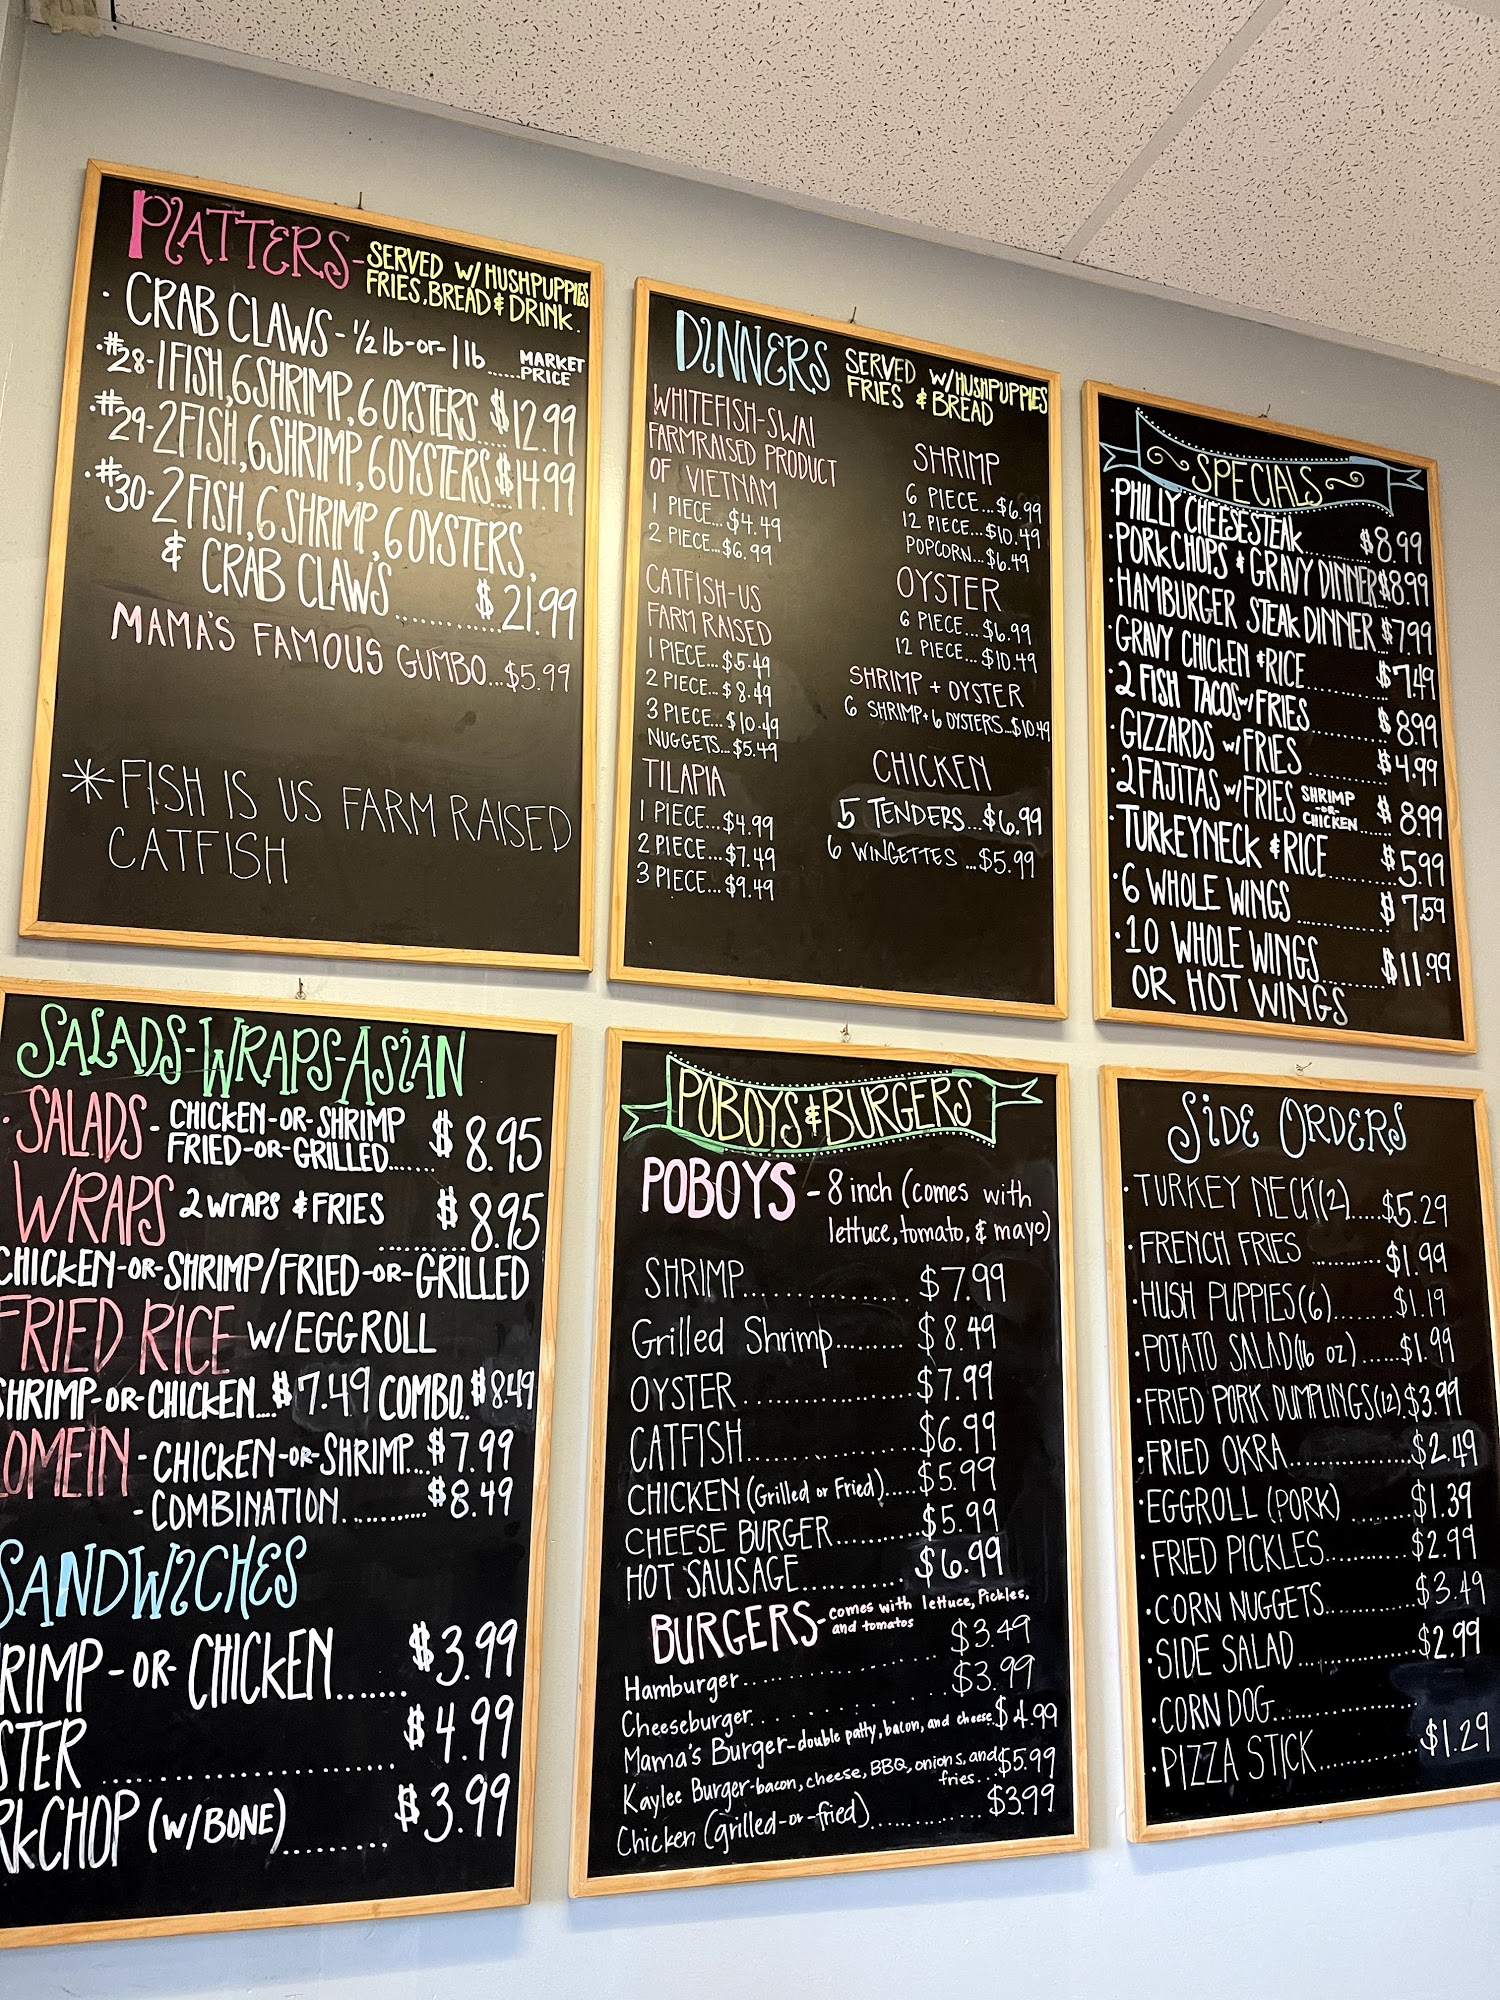 PLATTERS- SERVED W/ HUSHPUPPIES
FRIES, BREAD & DRINK.
· CRAB CLAWS - 1/2 lb -or- 1 lb ...... MARKET
PRICE
· #28- 1 FISH, 6 SHRIMP, 6 OYSTERS $12.99
· #29- 2 FISH, 6 SHRIMP, 6 OYSTERS $14.99
· #30- 2 FISH, 6 SHRIMP, 6 OYSTERS,
& CRAB CLAWS............ $21.99
MAMA'S FAMOUS GUMBO...$5.99
* FISH IS US FARM RAISED
CATFISH
DINNERS SERVED W/HUSHPUPPIES
FRIES & BREAD
WHITEFISH-SWAI
FARMRAISED PRODUCT
OF VIETNAM
1 PIECE...$4.49
2 PIECE...$6.99
CATFISH-US
FARM RAISED
1 PIECE...$5.49
2 PIECE...$8.49
3 PIECE...$10.49
NUGGETS...$5.49
TILAPIA
1 PIECE...$4.99
2 PIECE...$7.49
3 PIECE...$9.49
SHRIMP
6 PIECE...$6.99
12 PIECE...$10.49
POPCORN...$6.49
OYSTER
6 PIECE...$6.99
12 PIECE...$10.49
SHRIMP + OYSTER
6 SHRIMP+6 OYSTERS...$10.49
CHICKEN
5 TENDERS...$6.99
6 WINGETTES...$5.99
SPECIALS
· PHILLY CHEESESTEAK........ $8.99
· PORKCHOPS & GRAVY DINNER $8.99
· HAMBURGER STEAK DINNER $7.99
· GRAVY CHICKEN & RICE........ $7.49
· 2 FISH TACOS w/ FRIES........ $8.99
· GIZZARDS w/ FRIES ........ $4.99
· 2 FAJITAS w/ FRIES SHRIMP -OR- CHICKEN ..... $8.99
· TURKEYNECK & RICE.......... $5.99
· 6 WHOLE WINGS .......... $7.59
· 10 WHOLE WINGS........ $11.99
OR HOT WINGS
SALADS-WRAPS-ASIAN
· SALADS - CHICKEN-OR-SHRIMP $8.95
FRIED-OR-GRILLED......
WRAPS 2 WRAPS & FRIES .......... $8.95
CHICKEN-OR-SHRIMP/FRIED-OR-GRILLED
FRIED RICE W/EGGROLL
SHRIMP-OR-CHICKEN....$7.49 COMBO..$8.49
LOMEIN - CHICKEN-OR-SHRIMP....$7.99
- COMBINATION............$8.49
SANDWICHES
RIMP-OR-CHICKEN....... $3.99
STER ........................ $4.99
RKCHOP (W/BONE)....... $3.99
POBOYS & BURGERS
POBOYS - 8 inch (comes with
lettuce, tomato, & mayo)
SHRIMP.................. $7.99
Grilled Shrimp......... $8.49
OYSTER.................. $7.99
CATFISH.................. $6.99
CHICKEN (Grilled or Fried).....$5.99
CHEESE BURGER..........$5.99
HOT SAUSAGE........... $6.99
BURGERS- comes with lettuce, Pickles,
and tomatos
Hamburger.................. $3.49
Cheeseburger.............. $3.99
Mama's Burger-double patty, bacon, and cheese.$4.99
Kaylee Burger-bacon, cheese, BBQ, onions, and $5.99
fries...
Chicken (grilled-or-fried)............$3.99
SIDE ORDERS
· TURKEY NECK(2).....$5.29
· FRENCH FRIES ..........$1.99
· HUSH PUPPIES(6)........$1.19
· POTATO SALAD(16 oz)......$1.99
· FRIED PORK DUMPLINGS(12).$3.99
· FRIED OKRA...............$2.49
· EGGROLL (PORK) ........$1.39
· FRIED PICKLES............$2.99
· CORN NUGGETS............$3.49
· SIDE SALAD................$2.99
· CORN DOG..................
· PIZZA STICK.............$1.29